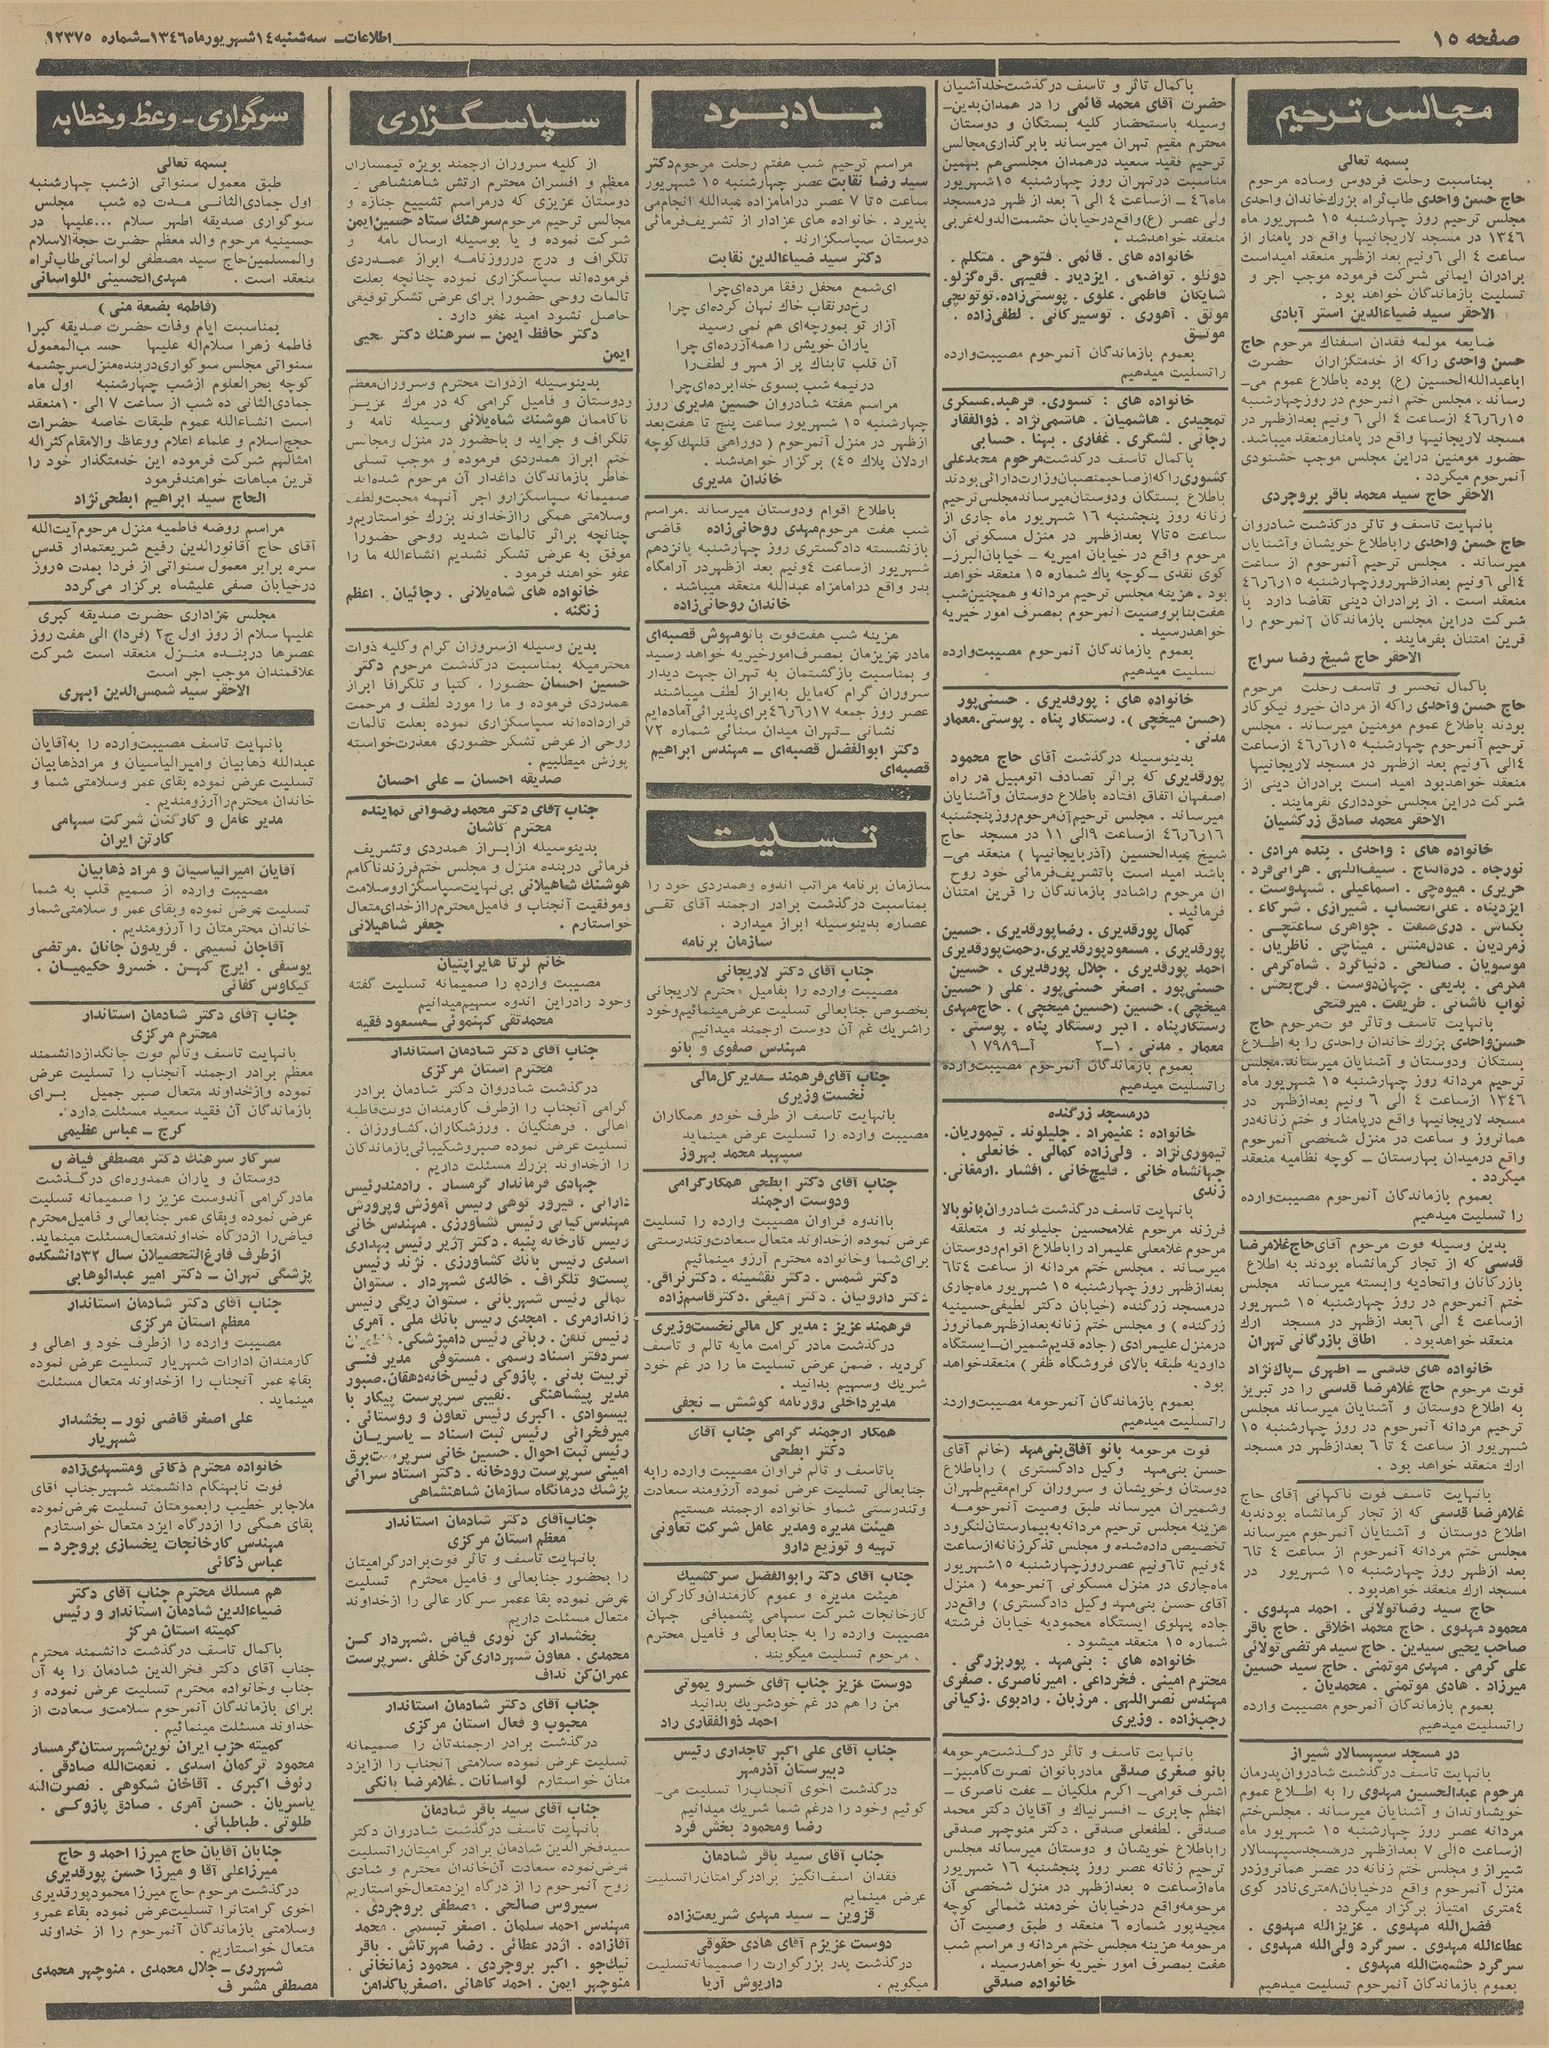 صفحه ۱۵
اطلاعات ـ سه‌شنبه ۱۴ شهریورماه ۱۳۴۶ ـ شماره ۱۲۳۷۵
مجالس ترحیم
بسمه تعالی
بمناسبت رحلت فردوس وساده مرحوم
حاج حسن واحدی طاب‌ثراه بزرك‌خاندان واحدی
مجلس ترحیم روز چهارشنبه ۱۵ شهریور ماه
۱۳۴۶ در مسجد لاریجانیها واقع در پامنار از
ساعت ۴ الی ۶ونیم بعد ازظهر منعقد امیداست
برادران ایمانی شرکت فرموده موجب اجر و
تسلیت بازماندگان خواهد بود .
الاحقر سید ضیاءالدین استر آبادی
ضایعه مولمه فقدان اسفناك مرحوم حاج
حسن واحدی راکه از خدمتگزاران حضرت
اباعبدالله‌الحسین (ع) بوده باطلاع عموم می‌ـ
رساند . مجلس ختم آنمرحوم در روز چهارشنبه
۱۵ر۶ر۴۶ ازساعت ۴ الی ۶ ونیم بعدازظهر در
مسجد لاریجانیها واقع در پامنار منعقد میباشد.
حضور مومنین دراین مجلس موجب خشنودی
آنمرحوم میگردد .
الاحقر حاج سید محمد باقر بروجردی
بانهایت تاسف و تاثر درگذشت شادروان
حاج حسن واحدی راباطلاع خویشان وآشنایان
میرساند . مجلس ترحیم آنمرحوم از ساعت
۴الی ۶ونیم بعدازظهر روز چهارشنبه ۱۵ر۶ر۴۶
منعقد است . از برادران دینی تقاضا دارد با
شرکت دراین مجلس بازماندگان آنمرحوم را
قرین امتنان بفرمایند .
الاحقر حاج شیخ رضا سراج
باکمال تحسر و تاسف رحلت مرحوم
حاج حسن واحدی راکه از مردان خیرو نیکوکار
بودند باطلاع عموم مومنین میرساند . مجلس
ترحیم آنمرحوم چهارشنبه ۱۵ر۶ر۴۶ ازساعت
۴الی ۶ونیم بعد ازظهر در مسجد لاریجانیها
منعقد خواهدبود امید است برادران دینی از
شرکت دراین مجلس خودداری نفرمایند .
الاحقر محمد صادق زرکشیان
خانواده های : واحدی . بنده مرادی .
بانهایت تاسف وتاثر فوت‌مرحوم حاج
حسن‌واحدی بزرك خاندان واحدی را به اطلاع
بستگان ودوستان و آشنایان میرساند.مجلس
ترحیم مردانه روز چهارشنبه ۱۵ شهریور ماه
۱۳۴۶ ازساعت ۴ الی ۶ ونیم بعدازظهر در
مسجد لاریجانیها واقع درپامنار و ختم زنانه‌در
همانروز و ساعت در منزل شخصی آنمرحوم
واقع درمیدان بهارستان ـ کوچه نظامیه منعقد
میگردد .
بعموم بازماندگان آنمرحوم مصیبت‌وارده
را تسلیت میدهیم
بدین وسیله فوت مرحوم آقای‌حاج‌غلامرضا
قدسی که از تجار کرمانشاه بودند به اطلاع
بازرگانان واتحادیه وابسته میرساند مجلس
ختم آنمرحوم در روز چهارشنبه ۱۵ شهریور
ازساعت ۴ الی ۶بعد ازظهر در مسجد ارك
منعقد خواهدبود . اطاق بازرگانی تهران
خانواده های قدسی ـ اطهری ـ پاك‌نژاد
فوت مرحوم حاج غلامرضا قدسی را در تبریز
به اطلاع دوستان و آشنایان میرساند مجلس
ترحیم مردانه آنمرحوم در روز چهارشنبه ۱۵
شهریور از ساعت ۴ تا ۶ بعدازظهر در مسجد
ارك منعقد خواهد بود .
بانهایت تاسف فوت ناگهانی آقای حاج
غلامرضا قدسی که از تجار کرمانشاه بودندبه
اطلاع دوستان و آشنایان آنمرحوم میرساند
مجلس ختم مردانه آنمرحوم از ساعت ۴ تا۶
بعد ازظهر روز چهارشنبه ۱۵ شهریور در
مسجد ارك منعقد خواهدبود.
حاج سید رضاتولائی . احمد مهدوی .
محمود مهدوی . حاج محمد اخلاقی . حاج باقر
صاحب یحیی سیدین . حاج سید مرتضی تولائی
علی کرمی . مهدی موتمنی . حاج سید حسین
میرزاد . هادی موتمنی . محمدیان .
بعموم بازماندگان آنمرحوم مصیبت وارده
راتسلیت میدهیم
در مسجد سپهسالار شیراز
بانهایت تاسف درگذشت شادروان‌پدرمان
مرحوم عبدالحسین مهدوی را به اطلاع عموم
خویشاوندان و آشنایان میرساند . مجلس‌ختم
مردانه عصر روز چهارشنبه ۱۵ شهریور ماه
ازساعت ۵الی ۷ بعدازظهر درمسجدسپهسالار
شیراز و ختم زنانه در عصر همانروزدر
منزل آنمرحوم واقع درخیابان۸متری‌نادر کوی
۴متری امتیاز برگزار میگردد .
فضل‌الله مهدوی . عزیزالله مهدوی .
عطاءالله مهدوی . سرگرد ولی‌الله مهدوی .
سرگرد حشمت‌الله مهدوی .
بعموم بازماندگان آنمرحوم تسلیت میدهیم
باکمال تاثر و تاسف درگذشت‌خلدآشیان
حضرت آقای محمد قائمی را در همدان بدین‌ـ
وسیله باستحضار کلیه بستگان و دوستان
محترم مقیم تهران میرساند بابرگذاری‌مجالس
ترحیم فقید سعید درهمدان مجلسی‌هم بهمین
مناسبت درتهران روز چهارشنبه ۱۵شهریور
ماه۴۶ ـ ازساعت ۴ الی ۶ بعد از ظهر درمسجد
ولی عصر (ع)واقع‌درخیابان حشمت‌الدوله‌غربی
منعقد خواهدشد .
خانواده های . قائمی . فتوحی . متکلم .
بعموم بازماندگان آنمرحوم مصیبت‌وارده
راتسلیت میدهیم
خانواده های : کشوری. فرهبد.عسکری
تمجیدی . هاشمیان . هاشمی‌نژاد . ذوالفقار
رجائی . لشگری . غفاری . بهنا . حسابی
باکمال تاسف درگذشت‌مرحوم محمدعلی
کشوری‌راکه‌ازصاحبمنصبان‌وزارت‌دارائی‌بودند
باطلاع بستگان ودوستان‌میرساندمجلس‌ترحیم
زنانه روز پنجشنبه ۱۶ شهریور ماه جاری از
ساعت ۵تا۷ بعدازظهر در منزل مسکونی آن
مرحوم واقع در خیابان امیریه ـ خیابان‌البرزـ
کوی نقدی ـ کوچه پاك شماره ۱۵ منعقد خواهد
بود . هزینه مجلس ترحیم مردانه و همچنین‌شب
هفت‌بنابروصیت آنمرحوم بمصرف امور خیریه
خواهدرسید .
بعموم بازماندگان آنمرحوم مصیبت‌وارده
تسلیت میدهیم
خانواده های : پورقدیری . حسنی‌پور
(حسن میخچی ). رستگار پناه . پوستی.معمار
مدنی .
بدینوسیله درگذشت آقای حاج محمود
پورقدیری که براثر تصادف اتومبیل در راه
اصفهان اتفاق افتاده باطلاع دوستان وآشنایان
میرساند . مجلس ترحیم‌آن‌مرحوم‌روزپنجشنبه
۱۶ر۶ر۴۶ ازساعت ۹الی ۱۱ در مسجد حاج
شیخ عبدالحسین (آذربایجانیها ) منعقد می‌ـ
باشد امید است باتشریف‌فرمائی خود روح
آن مرحوم راشادو بازماندگان را قرین امتنان
فرمائید .
کمال پورقدیری . رضاپورقدیری . حسین
پورقدیری . مسعودپورقدیری.رحمت‌پورقدیری
احمد پورقدیری . جلال پورقدیری . حسین
حسنی‌پور . اصغر حسنی‌پور . علی (حسین
میخچی). حسین (حسین میخچی) . حاج‌مهدی
رستگارپناه . اکبر رستگار پناه . پوستی .
معمار . مدنی . ۱ـ۲ آـ۱۷۹۸۹
بعموم بازماندگان آنمرحوم مصیبت‌وارده
راتسلیت میدهیم
درمسجد زرگنده
بانهایت تاسف درگذشت شادروان‌بانوبالا
فرزند مرحوم غلامحسین جلیلوند و متعلقه
مرحوم غلامعلی علیمراد راباطلاع اقوام‌ودوستان
میرساند . مجلس ختم مردانه از ساعت ۴تا۶
بعدازظهر روز چهارشنبه ۱۵ شهریور ماه‌جاری
درمسجد زرگنده (خیابان دکتر لطیفی‌حسینیه
زرگنده ) و مجلس ختم زنانه‌بعدازظهر همانروز
درمنزل علیمرادی ( جاده قدیم‌شمیران‌ـ‌ایستگاه
داودیه طبقه بالای فروشگاه ظفر ) منعقدخواهد
بود .
بعموم بازماندگان آنمرحومه مصیبت‌وارده
راتسلیت میدهیم
فوت مرحومه بانو آفاق‌بنی‌مهد (خانم آقای
حسن بنی‌مهد وکیل دادگستری ) راباطلاع
دوستان وخویشان و سروران گرام‌مقیم‌طهران
وشمیران میرساند طبق وصیت آنمرحومه
هزینه مجلس ترحیم مردانه‌به‌بیمارستان‌لنگرود
تخصیص داده‌شده و مجلس تذکرزنانه‌ازساعت
۴ونیم تا۶ونیم عصرروزچهارشنبه ۱۵شهریور
ماه‌جاری در منزل مسکونی آنمرحومه ( منزل
آقای حسن بنی‌مهد وکیل دادگستری ) واقع‌در
جاده پهلوی ایستگاه محمودیه خیابان فرشته
شماره ۱۵ منعقد میشود .
خانواده های : بنی‌مهد . پوربزرگی .
محترم امینی . فخرداعی . امیرناصری . صفری
مهندس نصراللهی . مرزبان . رادبوی .زکیانی
رجب‌زاده . وزیری
بانهایت تاسف و تاثر درگذشت‌مرحومه
بانو صغری صدقی مادربانوان نصرت‌کامبیزـ
اشرف قوامی‌ـ اکرم ملکیان ـ عفت ناصری ـ
اعظم جابری ـ افسرنیاك و آقایان دکتر محمد
صدقی . لطفعلی صدقی . دکتر منوچهر صدقی
راباطلاع خویشان و دوستان میرساند مجلس
ترحیم زنانه عصر روز پنجشنبه ۱۶ شهریور
ماه‌ازساعت ۵ بعدازظهر در منزل شخصی آن
مرحومه‌واقع درخیابان خردمند شمالی کوچه
مجیدپور شماره ۶ منعقد و طبق وصیت آن
مرحومه هزینه مجلس ختم مردانه و مراسم شب
هفت بمصرف امور خیریه خواهدرسید .
خانواده صدقی
یادبود
مراسم ترحیم شب هفتم رحلت مرحوم‌دکتر
سید رضا نقابت عصر چهارشنبه ۱۵ شهریور
ساعت ۵تا ۷ عصر درامامزاده عبدالله انجام‌می
پذیرد . خانواده های عزادار از تشریف‌فرمائی
دوستان سپاسگزارند .
دکتر سید ضیاءالدین نقابت
ای‌شمع محفل رفقا مرده‌ای‌چرا
رخ‌درنقاب خاك نهان کرده‌ای چرا
آزار تو بمورچه‌ای هم نمی رسید
یاران خویش را همه‌آزرده‌ای چرا
آن قلب تابناك پر از مهر و لطف‌را
درنیمه شب بسوی خدابرده‌ای‌چرا
مراسم هفته شادروان حسین مدیری روز
چهارشنبه ۱۵ شهریور ساعت پنج تا هفت‌بعد
ازظهر در منزل آنمرحوم ( دوراهی قلهك‌کوچه
اردلان پلاك ۴۵) برگزار خواهدشد .
خاندان مدیری
باطلاع اقوام ودوستان میرساند .مراسم
شب هفت مرحوم‌مهدی روحانی‌زاده قاضی
بازنشسته دادگستری روز چهارشنبه پانزدهم
شهریور ازساعت ۴ونیم بعد ازظهردر آرامگاه
پدر واقع درامامزاه عبدالله منعقد میباشد .
خاندان روحانی‌زاده
هزینه شب هفت‌فوت بانومهوش قصبه‌ای
مادرعزیزمان بمصرف‌امورخیریه خواهد رسید
و بمناسبت بازگشتمان به تهران جهت دیدار
سروران گرام که‌مایل به‌ابراز لطف میباشند
عصر روز جمعه ۱۷ر۶ر۴۶برای‌پذیرائی‌آماده‌ایم
نشانی ـ تهران میدان سنائی شماره ۷۲
دکتر ابوالفضل قصبه‌ای ـ مهندس ابراهیم
قصبه‌ای
تسلیت
سازمان برنامه مراتب اندوه وهمدردی خود را
بمناسبت درگذشت برادر ارجمند آقای تقی
عصاره بدینوسیله ابراز میدارد .
سازمان برنامه
جناب آقای دکتر لاریجانی
مصیبت وارده را بفامیل محترم لاریجانی
بخصوص جنابعالی تسلیت عرض‌مینمائیم‌وخود
راشریك غم آن دوست ارجمند میدانیم
مهندس صفوی و بانو
جناب آقای‌فرهمند ـ مدیرکل‌مالی
نخست وزیری
بانهایت تاسف از طرف خودو همکاران
مصیبت وارده را تسلیت عرض مینماید
سپهبد محمد بهروز
جناب آقای دکتر ابطحی همکارگرامی
ودوست ارجمند
بااندوه فراوان مصیبت وارده را تسلیت
عرض نموده ازخداوند متعال سعادت‌وتندرستی
برای‌شما وخانواده محترم آرزو مینمائیم
دکتر شمس . دکتر نقشینه . دکترنراقی.
دکتر داروبیان . دکتر آمیغی .دکترقاسم‌زاده
فرهمند عزیز : مدیر کل مالی‌نخست‌وزیری
درگذشت مادر گرامت مایه تالم و تاسف
گردید . ضمن عرض تسلیت ما را در غم خود
شریك وسهیم بدانید .
مدیرداخلی روزنامه کوشش ـ نجفی
همکار ارجمند گرامی جناب آقای
دکتر ابطحی
باتاسف و تالم فراوان مصیبت وارده رابه
جنابعالی تسلیت عرض نموده آرزومند سعادت
وتندرستی شماو خانواده ارجمند هستیم
هیئت مدیره ومدیر عامل شرکت تعاونی
تهیه و توزیع دارو
جناب آقای دکتر ابوالفضل سرکشیك
هیئت مدیره و عموم کارمندان‌وکارگران
کارخانجات شرکت سهامی پشمبافی جهان
مصیبت وارده را به جنابعالی و فامیل محترم
مرحوم تسلیت میگویند .
دوست عزیز جناب آقای خسرو یموتی
من را هم در غم خودشریك بدانید
احمد ذوالفقاری راد
جناب آقای علی اکبر تاجداری رئیس
دبیرستان آذرمهر
درگذشت اخوی آنجناب‌را تسلیت می‌ـ
گوئیم وخود را درغم شما شریك میدانیم
رضا ومحمود بخش فرد
جناب آقای سید باقر شادمان
فقدان اسف‌انگیز برادرگرامتان‌راتسلیت
عرض مینمایم
قزوین ـ سید مهدی شریعت‌زاده
دوست عزیزم آقای هادی حقوقی
درگذشت پدر بزرگوارت را صمیمانه‌تسلیت
میگویم . داریوش آریا
سپاسگزاری
از کلیه سروران ارجمند بویژه تیمساران
معظم و افسران محترم ارتش شاهنشاهی و
دوستان عزیزی که درمراسم تشییع جنازه و
مجالس ترحیم مرحوم‌سرهنك ستاد حسین‌ایمن
شرکت نموده و یا بوسیله ارسال نامه و
تلگراف و درج درروزنامه ابراز همدردی
فرموده‌اند سپاسگزاری نموده چنانچه بعلت
تالمات روحی حضورا برای عرض تشکر توفیقی
حاصل نشود امید عفو دارد .
دکتر حافظ ایمن ـ سرهنك دکتر یحیی
ایمن
بدینوسیله ازذوات محترم وسروران‌معظم
ودوستان و فامیل گرامی که در مرك عزیز
ناکاممان هوشنك شاه‌یلانی وسیله نامه و
تلگراف و جراید و باحضور در منزل ومجالس
ختم ابراز همدردی فرموده و موجب تسلی
خاطر بازماندگان داغدار آن مرحوم شده‌اند
صمیمانه سپاسگزارو اجر آنهمه محبت‌ولطف
وسلامتی همگی راازخداوند بزرك خواستاریم‌و
چنانچه براثر تالمات شدید روحی حضورا
موفق به عرض تشکر نشدیم انشاءالله ما را
عفو خواهند فرمود .
خانواده های شاه‌یلانی . رجائیان . اعظم
زنگنه .
بدین وسیله ازسروران گرام وکلیه ذوات
محترمیکه بمناسبت درگذشت مرحوم دکتر
حسین احسان حضورا . کتبا و تلگرافا ابراز
همدردی فرموده و ما را مورد لطف و مرحمت
قرارداده‌اند سپاسگزاری نموده بعلت تالمات
روحی از عرض تشکر حضوری معذرت‌خواسته
پوزش میطلبیم .
صدیقه احسان ـ علی احسان
جناب آقای دکتر محمد رضوانی نماینده
محترم کاشان
بدینوسیله ازابراز همدردی وتشریف
فرمائی دربنده منزل و مجلس ختم‌فرزندناکامم
هوشنك شاهیلانی بی‌نهایت‌سپاسگزاروسلامت
وموفقیت آنجناب و فامیل محترم‌راازخدای‌متعال
خواستارم . جعفر شاهیلانی
مصیبت وارده را صمیمانه تسلیت گفته
وخود رادراین اندوه سهیم‌میدانیم
محمدتقی کهنموئی ـ مسعود فقیه
جناب آقای دکتر شادمان استاندار
محترم استان مرکزی
درگذشت شادروان دکتر شادمان برادر
گرامی آنجناب را ازطرف کارمندان دولت‌قاطبه
اهالی . فرهنگیان . ورزشکاران.کشاورزان .
تسلیت عرض نموده صبروشکیبائی‌بازماندگان
را ازخداوند بزرك مسئلت داریم .
جناب‌آقای دکتر شادمان استاندار
معظم استان مرکزی
بانهایت تاسف و تاثر فوت‌برادرگرامیتان
را بحضور جنابعالی و فامیل محترم تسلیت
عرض نموده بقاءعمر سرکار عالی را ازخداوند
متعال مسئلت داریم
بخشدار کن نوری فیاض .شهردار کن
محمدی . معاون شهرداری‌کن خلفی .سرپرست
عمران‌کن نداف
جناب آقای دکتر شادمان استاندار
محبوب و فعال استان مرکزی
درگذشت برادر ارجمندتان را صمیمانه
تسلیت عرض نموده سلامتی آنجناب را ازایزد
منان خواستارم لواسانات .غلامرضا بانگی
جناب آقای سید باقر شادمان
بانهایت تاسف درگذشت شادروان دکتر
سیدفخرالدین شادمان برادر گرامیتان‌راتسلیت
عرض‌نموده سعادت آن‌خاندان محترم و شادی
روح آنمرحوم را از درگاه ایزدمتعال‌خواستاریم
سیروس صالحی . مصطفی بروجردی .
مهندس احمد سلمان . اصغر تبسمی . محمد
آقازاده . اژدر عطائی . رضا مهرتاش . باقر
نیك‌جو . اکبر بروجردی . محمود زمانخانی .
منوچهر ایمن . احمد کاهانی .اصغرپاکدامن
سوگواری ـ وعظ وخطابه
بسمه تعالی
طبق معمول سنواتی ازشب چهارشنبه
اول جمادی‌الثانی مدت ده شب مجلس
سوگواری صدیقه اطهر سلام ...علیها در
حسینیه مرحوم والد معظم حضرت حجةالاسلام
والمسلمین‌حاج سید مصطفی لواسانی‌طاب‌ثراه
منعقد است . مهدی‌الحسینی اللواسانی
(فاطمه بضعة منی )
بمناسبت ایام وفات حضرت صدیقه کبرا
فاطمه زهرا سلام‌اله علیها حسب‌المعمول
سنواتی مجلس سوگواری دربنده‌منزل سرچشمه
کوچه بحرالعلوم ازشب چهارشنبه اول ماه
جمادی‌الثانی ده شب از ساعت ۷الی ۱۰منعقد
است انشاءالله عموم طبقات خاصه حضرات
حجج‌اسلام و علماء اعلام ووعاظ والامقام‌کثراله
امثالهم شرکت فرموده این خدمتگذار خود را
قرین مباهات خواهندفرمود
الحاج سید ابراهیم ابطحی‌نژاد
مراسم روضه فاطمیه منزل مرحوم‌آیت‌الله
آقای حاج آقانورالدین رفیع شریعتمدار قدس
سره برابر معمول سنواتی از فردا بمدت ۵روز
درخیابان صفی علیشاه برگزار می‌گردد
مجلس عزاداری حضرت صدیقه کبری
علیها سلام از روز اول ج۲ (فردا) الی هفت روز
عصرها دربنده منزل منعقد است شرکت
علاقمندان موجب اجر است
الاحقر سید شمس‌الدین ابهری
بانهایت تاسف مصیبت‌وارده را به‌آقایان
عبدالله ذهابیان وامیرالیاسیان و مرادذهابیان
تسلیت عرض نموده بقای عمر وسلامتی شما و
خاندان محترم‌راآرزومندیم .
مدیر عامل و کارکنان شرکت سهامی
کارتن ایران
آقایان امیرالیاسیان و مراد ذهابیان
مصیبت وارده از صمیم قلب به شما
تسلیت عرض نموده وبقای عمر و سلامتی‌شماو
خاندان محترمتان را آرزومندیم .
آقاجان نسیمی . فریدون جانان .مرتضی
یوسفی . ایرج کهن . خسرو حکیمیان .
کیکاوس کفائی
جناب آقای دکتر شادمان استاندار
محترم مرکزی
بانهایت تاسف وتالم فوت جانگدازدانشمند
معظم برادر ارجمند آنجناب را تسلیت عرض
نموده وازخداوند متعال صبر جمیل برای
بازماندگان آن فقید سعید مسئلت دارد.
کرج ـ عباس عظیمی
سرکار سرهنك دکتر مصطفی فیاض
دوستان و یاران همدوره‌ای درگذشت
مادرگرامی آندوست عزیز را صمیمانه تسلیت
عرض نموده وبقای عمر جنابعالی و فامیل‌محترم
فیاض‌را ازدرگاه خداوندمتعال‌مسئلت مینماید.
ازطرف فارغ‌التحصیلان سال ۳۲دانشکده
پزشکی تهران ـ دکتر امیر عبدالوهابی
جناب آقای دکتر شادمان استاندار
معظم استان مرکزی
مصیبت وارده را ازطرف خود و اهالی و
کارمندان ادارات شهریار تسلیت عرض نموده
بقاء عمر آنجناب را ازخداوند متعال مسئلت
مینماید .
علی اصغر قاضی نور ـ بخشدار
شهریار
خانواده محترم ذکائی ومشهدی‌زاده
فوت نابهنگام دانشمند شهیرجناب آقای
ملاجابر خطیب رابعمومتان تسلیت عرض‌نموده
بقای همگی را ازدرگاه ایزد متعال خواستارم
مهندس کارخانجات یخسازی بروجرد ـ
عباس ذکائی
هم مسلك محترم جناب آقای دکتر
ضیاءالدین شادمان استاندار و رئیس
کمیته استان مرکز
باکمال تاسف درگذشت دانشمند محترم
جناب آقای دکتر فخرالدین شادمان را به آن
جناب وخانواده محترم تسلیت عرض نموده و
برای بازماندگان آنمرحوم سلامت‌و سعادت از
خداوند مسئلت مینمائیم .
کمیته حزب ایران نوین‌شهرستان‌گرمسار
محمود ترکمان اسدی . نعمت‌الله صادقی .
رئوف اکبری . آقاخان شکوهی . نصرت‌الله
یاسریان . حسن آمری . صادق پازوکی .
طلوئی . طباطبائی .
جنابان آقایان حاج میرزا احمد و حاج
میرزاعلی آقا و میرزا حسن پورقدیری
درگذشت مرحوم حاج میرزا محمودپورقدیری
اخوی گرامتانرا تسلیت‌عرض نموده بقاء عمرو
وسلامتی بازماندگان آنمرحوم را از خداوند
متعال خواستاریم .
شهرری ـ جلال محمدی . منوچهر محمدی
مصطفی مشرف